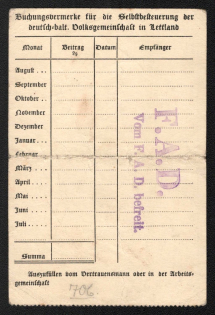 Buchungsvermerke für die Selbstbesteuerung der
deutsch-balt. Volksgemeinschaft in Lettland
Monat Beitrag Ls Datum Empfänger
August . . .
September
Oktober . .
November
Dezember
Januar . . .
Februar . .
März . . .
April . . .
Mai . . .
Juni . . .
Juli . . .
Summa
F. A. D.
Vom F. A. D. befreit.
Auszufüllen vom Vertrauensmann oder in der Arbeits-
gemeinschaft
706